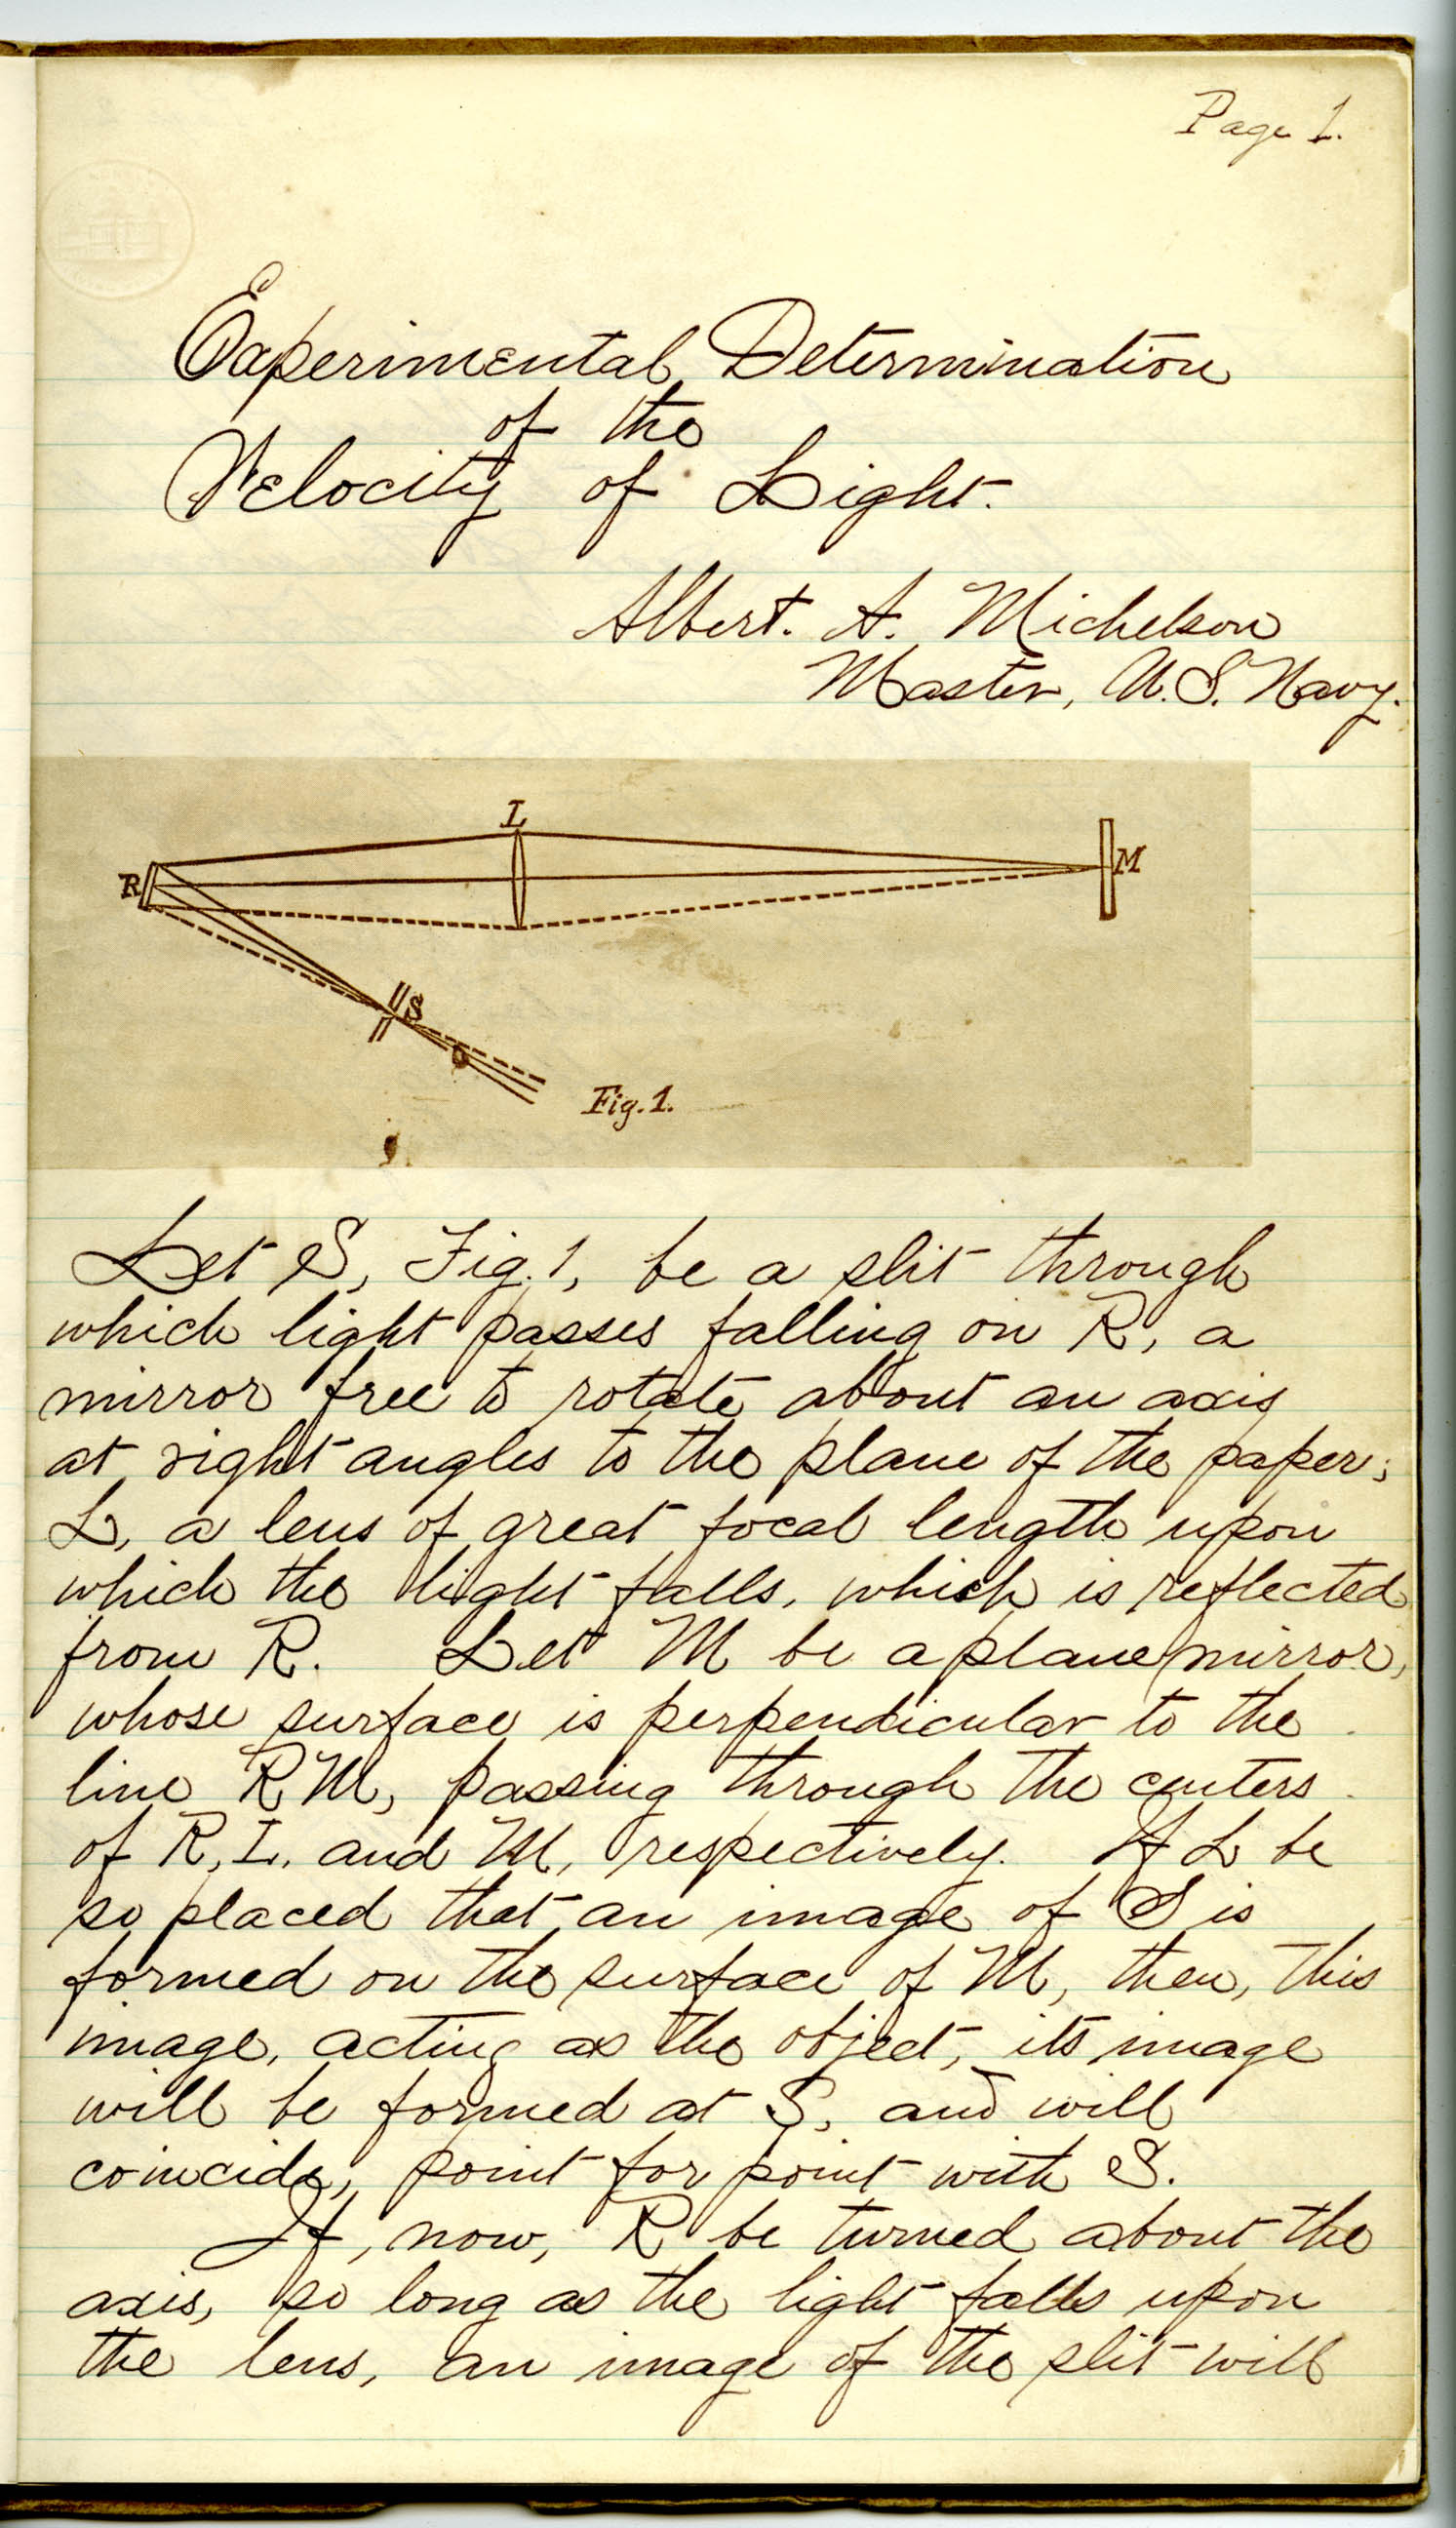 Page 1.
Experimental Determination
of the
Velocity of Light.
Albert. A. Michelson
Master, U.S. Navy.
L
R
M
S
Fig. 1.
Let S, Fig. 1, be a slit through
which light passes falling on R, a
mirror free to rotate about an axis
at right angles to the plane of the paper;
L, a lens of great focal length upon
which the light falls, which is reflected
from R. Let M be a plane mirror,
whose surface is perpendicular to the
line RM, passing through the centers
of R, L, and M, respectively. If L be
so placed that an image of S is
formed on the surface of M, then, this
image, acting as the object, its image
will be formed at S, and will
coincide, point for point with S.
If, now, R be turned about the
axis, so long as the light falls upon
the lens, an image of the slit will